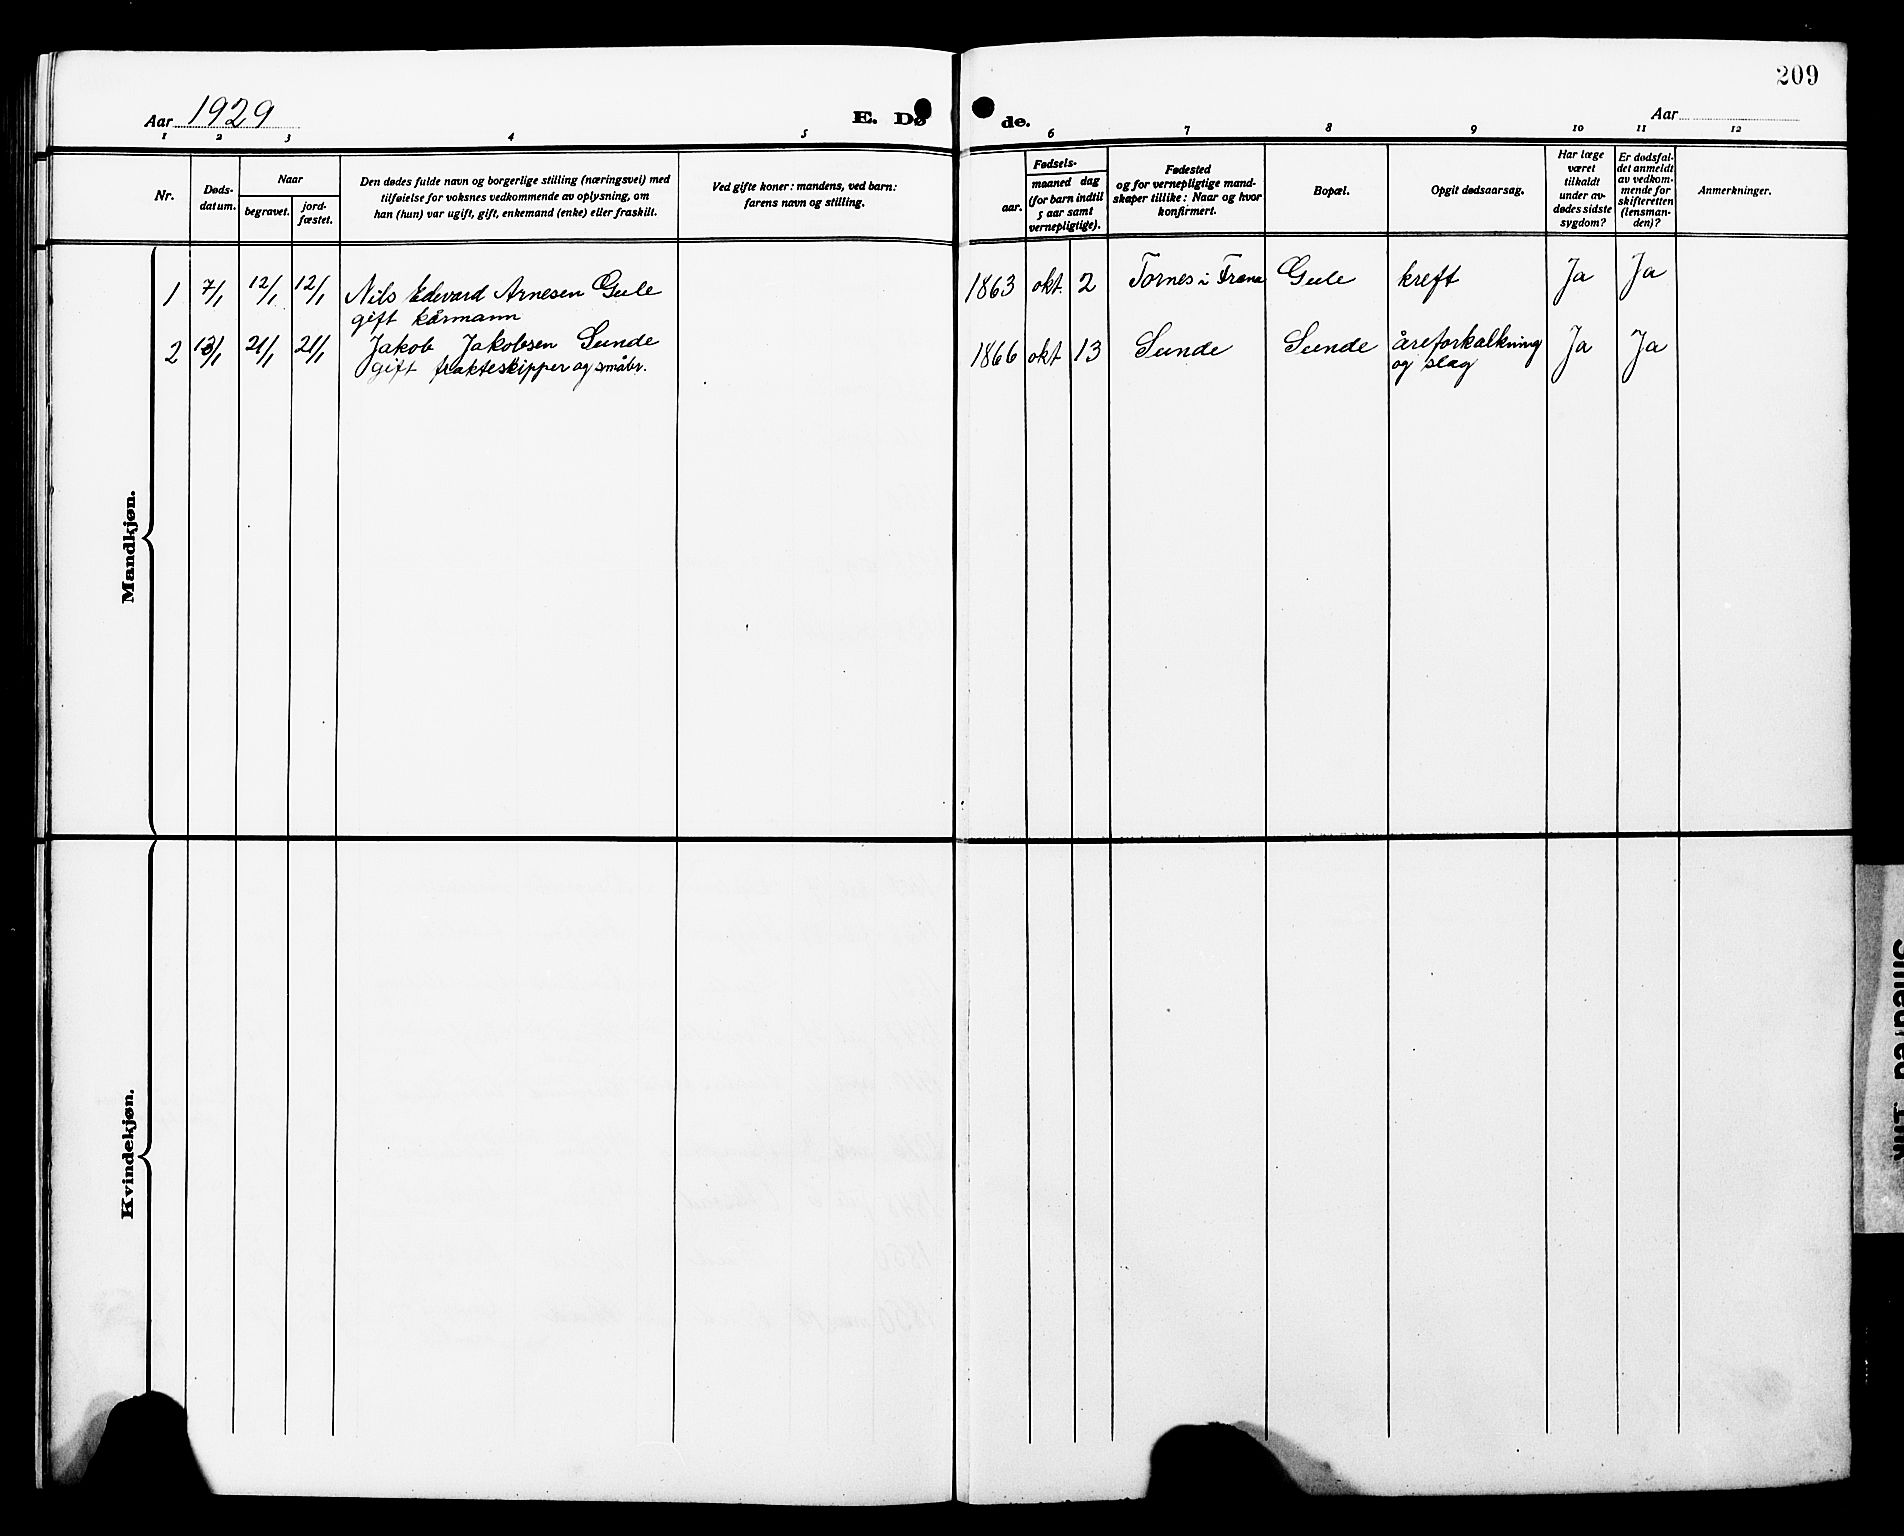 209
Aar 1929
E. Dø
de.
Aar
1 2 3 4 5
6 7 8 9 10 11 12
Nr.
Døds-
datum.
Naar
begravet.
jord-
fæstet.
Den dødes fulde navn og borgerlige stilling (næringsvei) med
tilføielse for voksnes vedkommende av oplysning, om
han (hun) var ugift, gift, enkemand (enke) eller fraskilt.
Ved gifte koner: mandens, ved barn:
farens navn og stilling.
Fødsels-
aar.
maaned dag
(for barn indtil
5 aar samt
vernepligtige).
Fødested
og for vernepligtige mand-
skaper tillike: Naar og hvor
konfirmert.
Bopæl.
Opgit dødsaarsag.
Har læge
været
tilkaldt
under av-
dødes sidste
sygdom?
Er dødsfal-
det anmeldt
av vedkom-
mende for
skifteretten
(lensman-
den)?
Anmerkninger.
Mandkjøn.
1 7/1 12/1 12/1 Nils Edevard Arnesen Gule 1863 okt. 2 Tornes i Fræna Gule kreft Ja Ja
gift kårmann
2 13/1 21/1 21/1 Jakob Jakobsen Sunde 1866 okt 13 Sunde Sunde åreforkalkning Ja Ja
gift frakteskipper og småbr. og slag
Kvindekjøn.